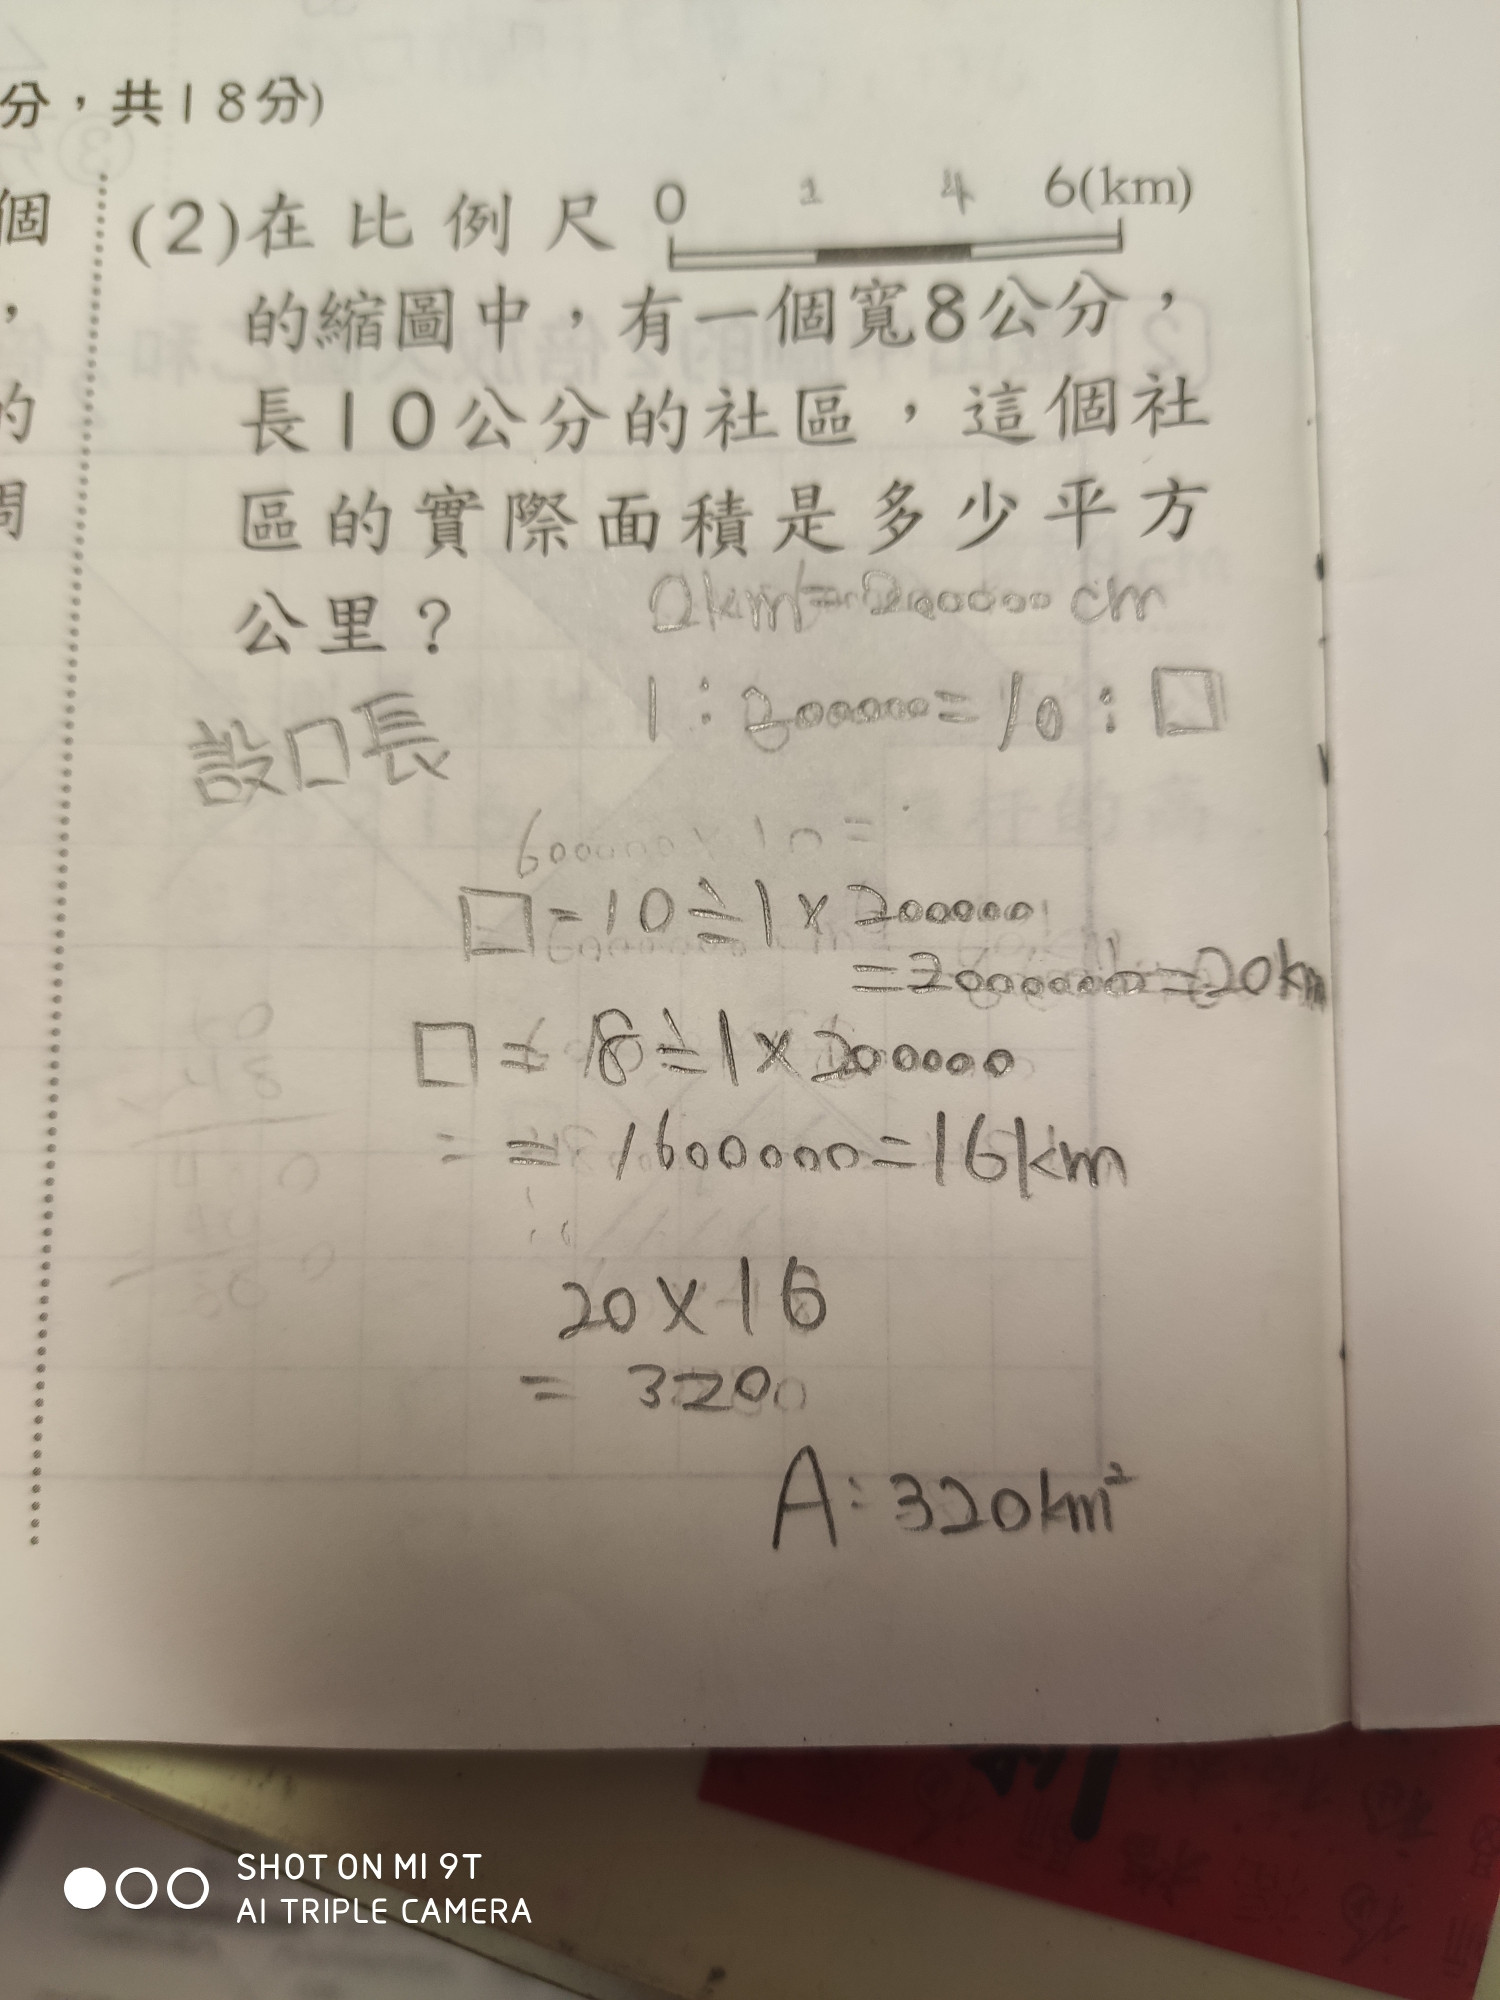 分，共18分)
個
，
的
周
(2)在比例尺 0 2 4 6(km)
的縮圖中，有一個寬8公分，
長10公分的社區，這個社
區的實際面積是多少平方
公里？
2km=200000cm
設□長
1:200000=10:□
□=10÷1×200000
=2000000=20km
□=8÷1×200000
= = 1600000=16km
20×16
= 320
A:320km²
SHOT ON MI 9T
AI TRIPLE CAMERA